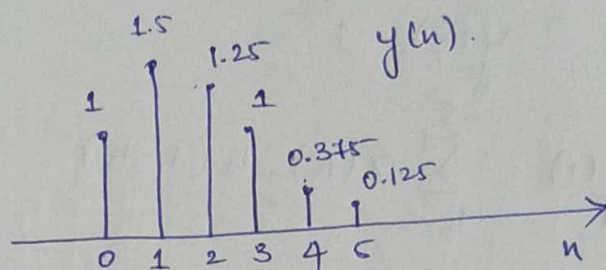 1.5
y(n).
1.25
1
1
0.375
0.125
0 1 2 3 4 5 n